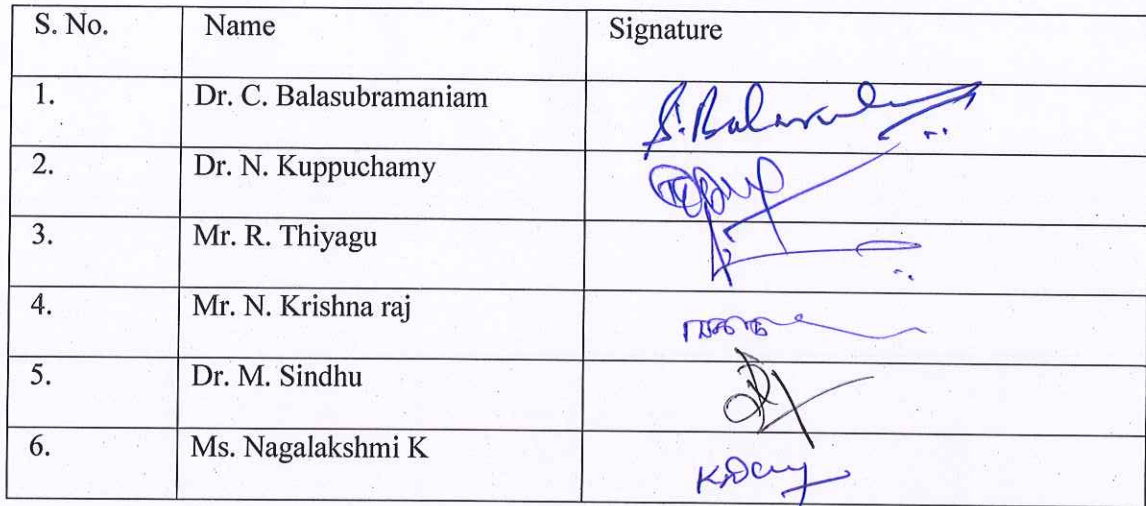 S. No. Name Signature
1. Dr. C. Balasubramaniam
2. Dr. N. Kuppuchamy
3. Mr. R. Thiyagu
4. Mr. N. Krishna raj
5. Dr. M. Sindhu
6. Ms. Nagalakshmi K